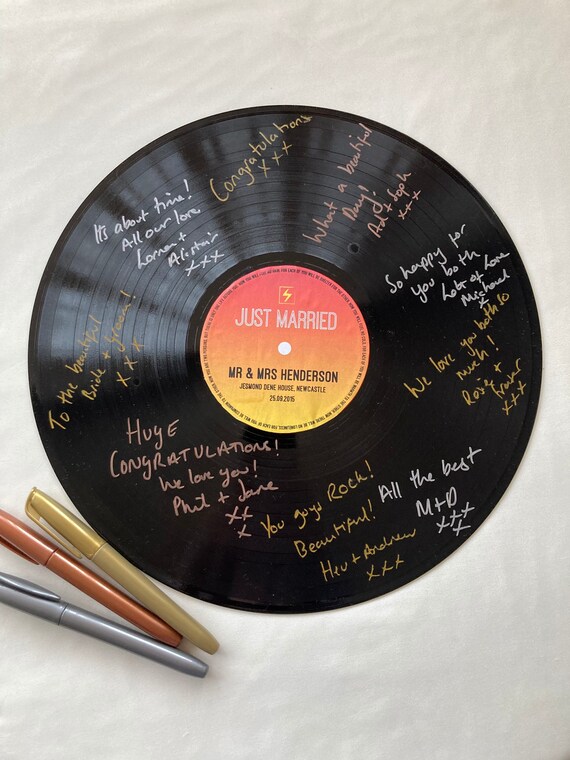 JUST MARRIED
MR & MRS HENDERSON
JESMOND DENE HOUSE, NEWCASTLE
25.09.2015
Congratulations
xxx
What a beautiful
Day!
Ad + Soph
xxx
It's about time!
All our love
Lorna +
Alistair
xxx
So happy for
you both
Lots of Love
Michael
x
To the beautiful
Bride + groom!
xxx
We love you both so
much!
Rosie +
xxx
HUGE
CONGRATULATIONS!
We love you!
Phil + Jane
xx
x
You guys ROCK!
Beautiful!
Hev + Andrew
xxx
All the best
M+D
xxx
x